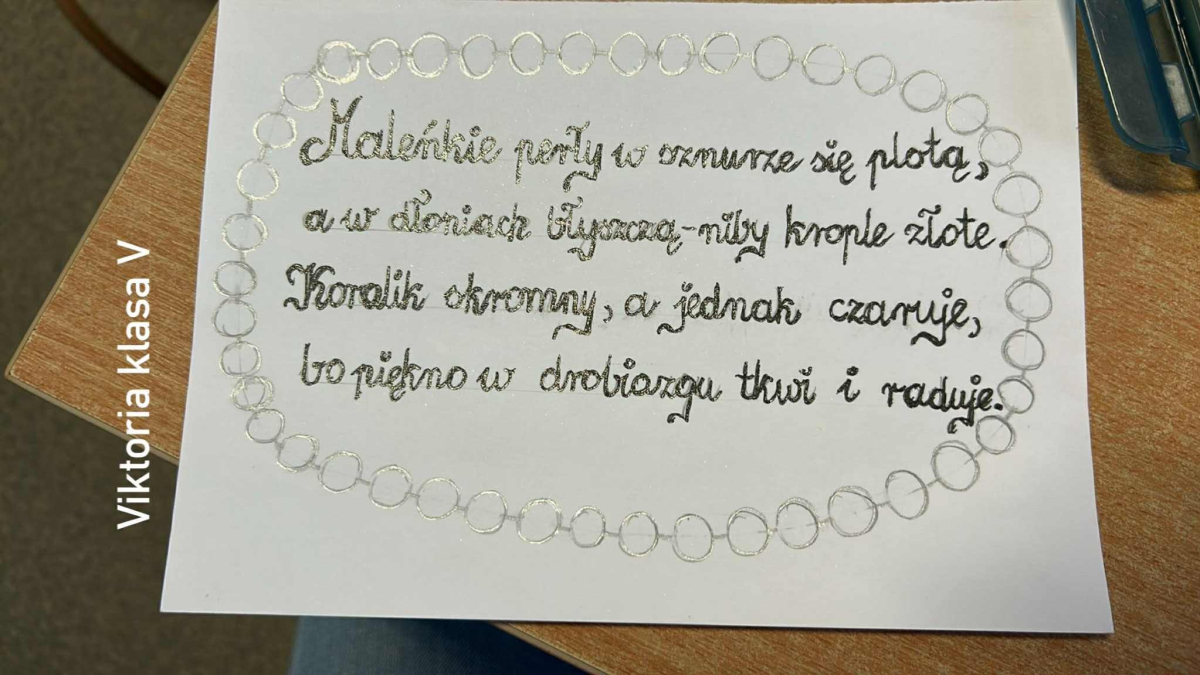 Maleńkie perły w sznurze się plotą,
a w dłoniach błyszczą-niby krople złote.
Koralik skromny, a jednak czaruje,
bo piękno w drobiazgu tkwi i raduje.
Viktoria klasa V